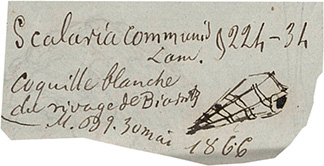 Scalaria Communis 9224-34
Lam.
Coquille blanche
du rivage de Biarritz
30 mai 1866